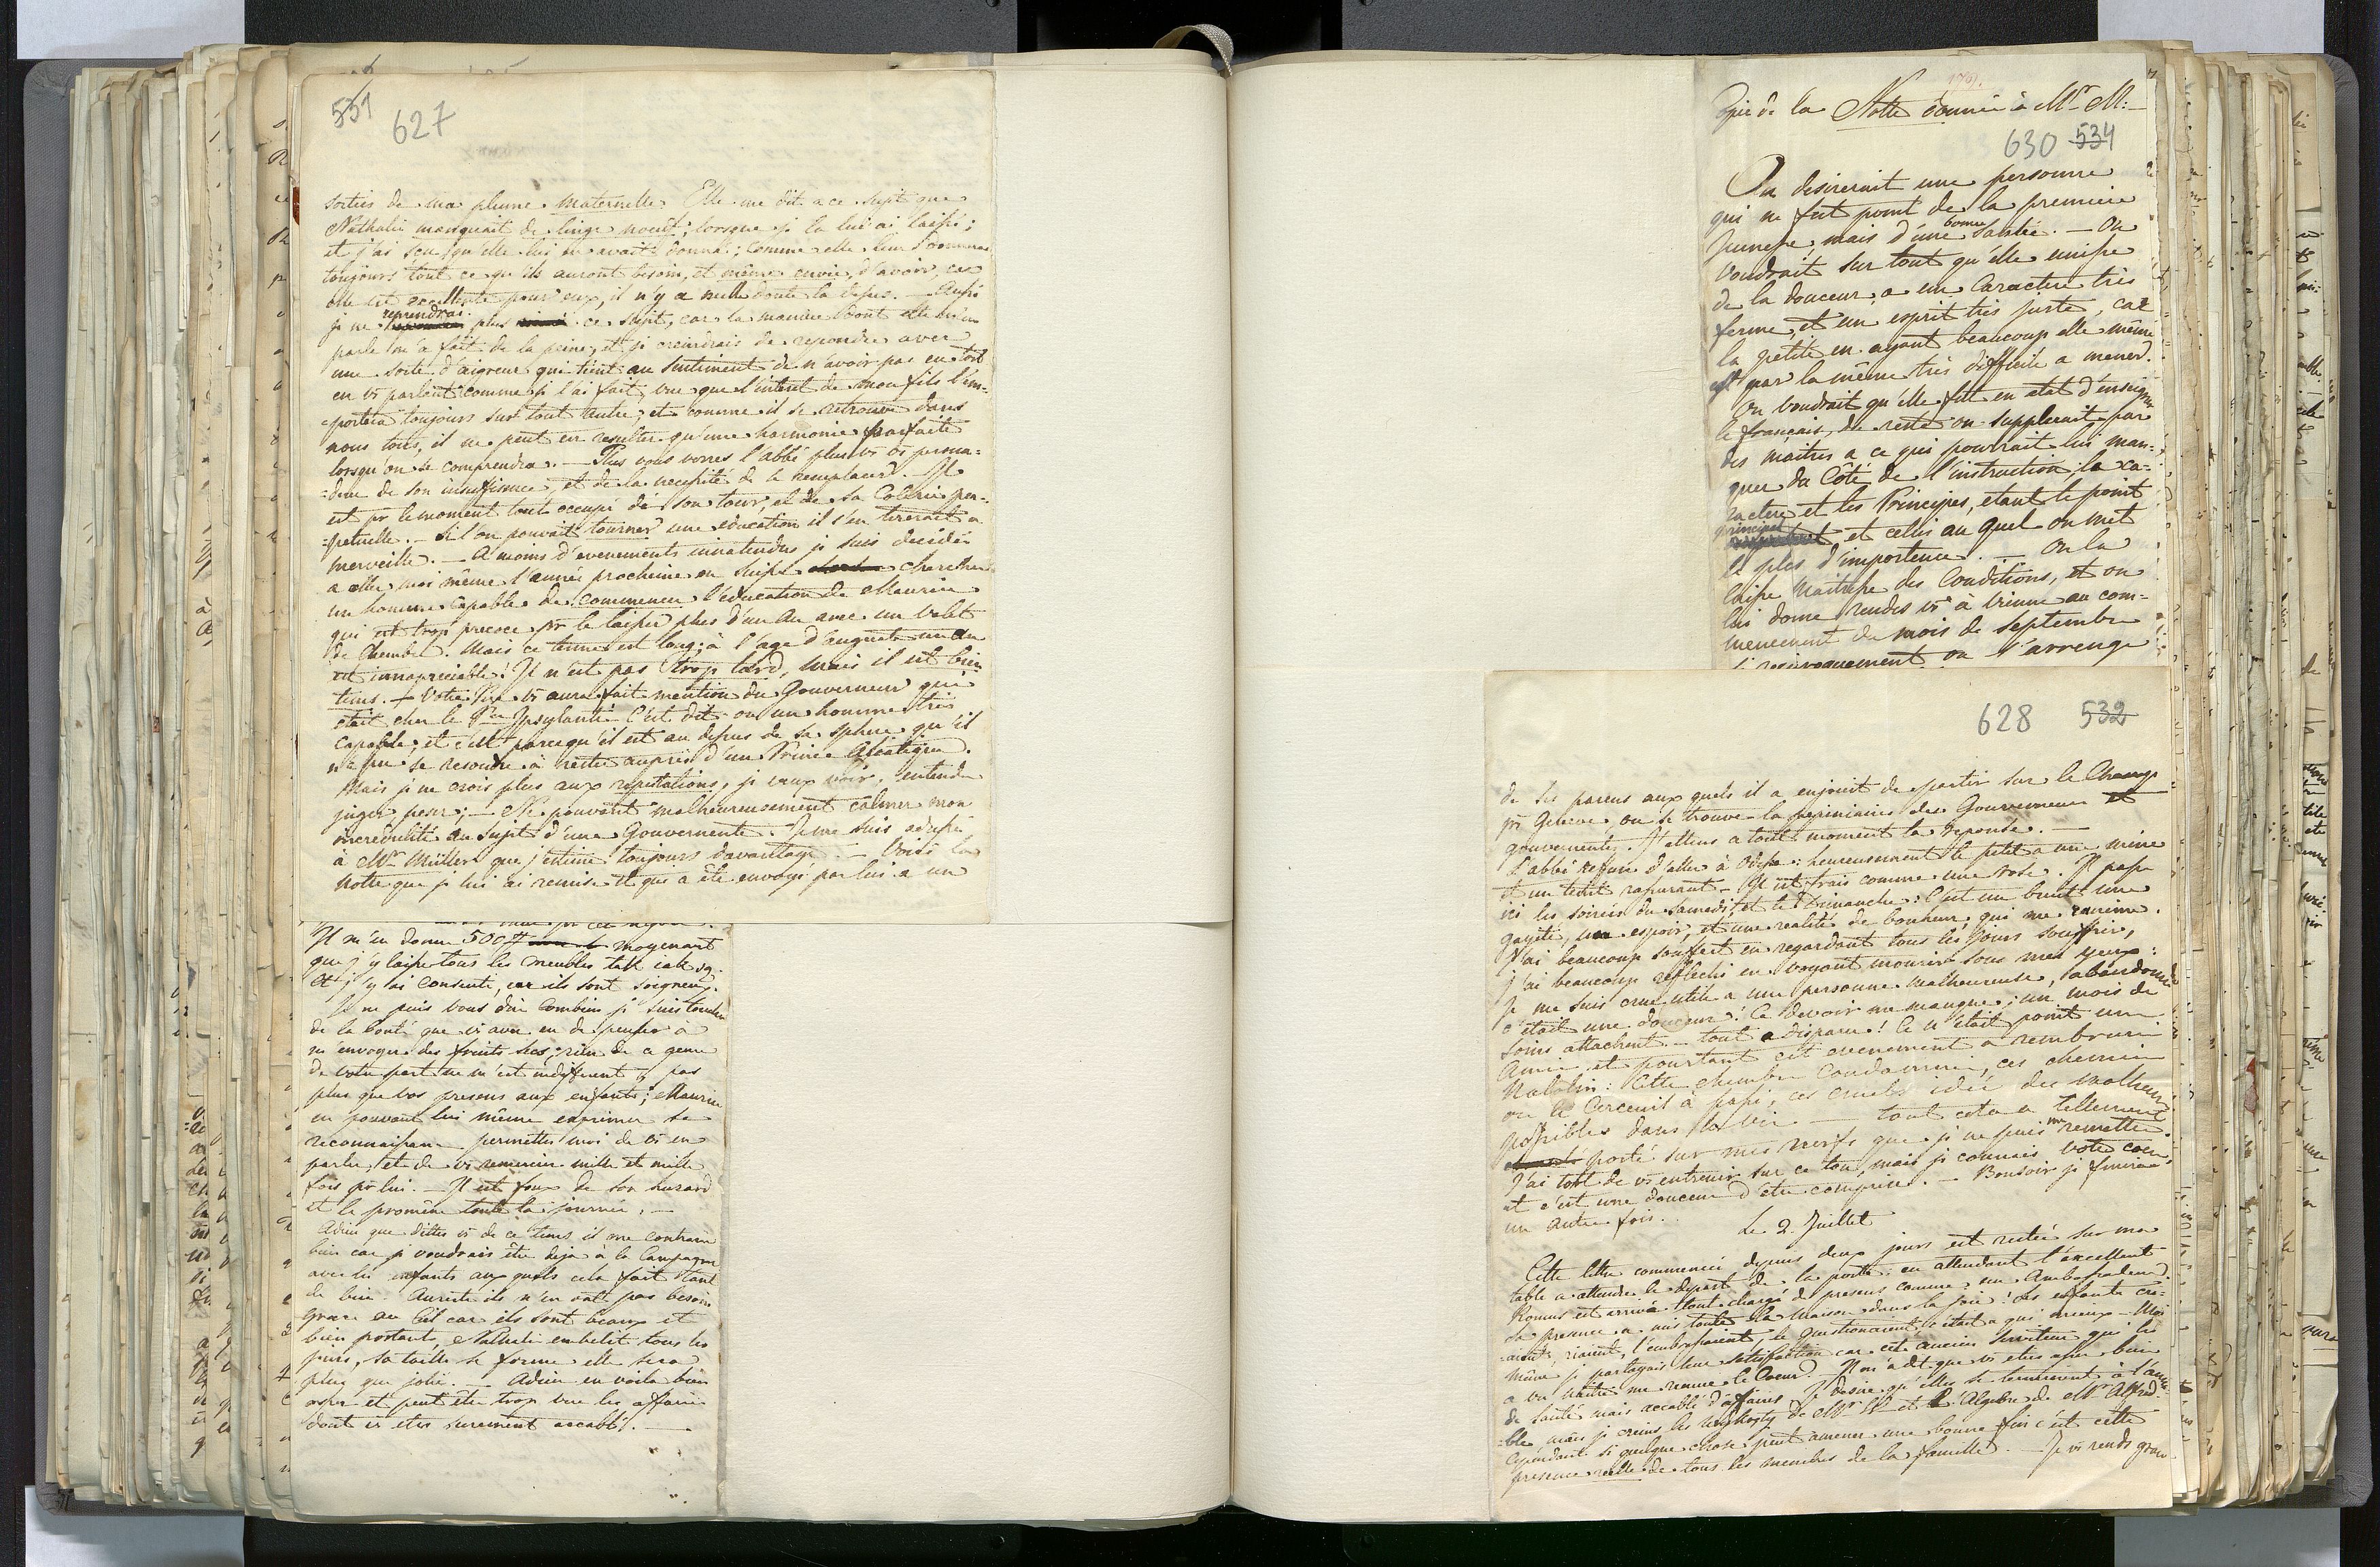 531 627
sorties de ma plume maternelle. Elle me dit a ce sujet que
Nathalie manquait de linge neuf; lorsque je la lui ai laissé;
et j'ai sçu qu'elle lui en avait donné; comme elle leur donnera
toujours tout ce qu'ils auront besoin, et même envie d'avoir, car
elle est excellente pour eux, il n'y a nulle doute la dessus. — Aussi
je ne reprendrai plus ce sujet, car la manière dont elle m'en
parle m'a fait de la peine, et je craindrais de repondre avec
une sorte d'aigreur qui tient au sentiment de n'avoir pas eu tort
en vs parlant comme je l'ai fait, vue que l'interet de mon fils l'em-
-portera toujours sur tout autre; et comme il se retrouve dans
nous tous, il ne peut en resulter qu'une harmonie parfaite
lorsqu'on se comprendra. — Plus vous verres l'abbé plus vs vs persua-
-deres de son insuffisance, et de la necessité de le remplacer. Il
est pr le moment tout occupé de son tour, et de sa Colerie per-
-petuelle. — Si l'on pouvait tourner une education il s'en tirerait a
merveille. — A moins d'evenements innatendus je suis decidée
a aller moi même l'année prochaine en Suisse chercher
un homme capable de commencer l'éducation de Maurice
qui est trop precoce pr le laisser plus d'un an avec un valet
de Chambre. Mais ce terme est long; à l'age d'auguste un an
est innapreciable! Il n'est pas trop tard, mais il est bien
tems. — Votre Père vs aura fait mention du Gouverneur qui
etait chez le Pce Ypsylanti. C'est dit-on un homme très
capable, et c'est parcequ'il est au dessus de sa sphere qu'il
n'a pu se resoudre à rester auprès d'un Prince Asiatique.
Mais je ne crois plus aux reputations, je veux voir, entendre
juger, peser; — Ne pouvant malheureusement calmer mon
incredulité au sujet d'une Gouvernante. Je me suis adressé
à Mr Müller que j'estime toujours davantage. — Voici la
notte que je lui ai remise et qui a été envoyé par lui a un
Il m'en donne 500 # moyenant
que j'y laisse tous les meubles
et j'y ai consenti, car ils sont soigneux.
Je ne puis vous dire combien je suis touchée
de la bonté que vs avez eu de penser à
m'envoyer des fruits secs; rien de ce genre
de votre part ne m'est indifferent, pas
plus que vos presens aux enfants; Maurice
ne pouvant lui même exprimer sa
reconnaissance permettes moi de vs en
parler, et de vs remercier mille et mille
fois pr lui. — Il est foux de son huzard
et le promène toute la journée. —
Adieu que dittes vs de ce tems il me contrarie
bien car je voudrais être deja à la Campagne
avec les enfants aux quels cela fait tant
de bien. Aureste ils n'en ont pas besoin
grace au Ciel car ils sont beaux et
bien portants, Nathalie embelit tous les
jours, sa taille se forme elle sera
plus que jolie. — Adieu en voila bien
assez et peut être trop vue les affaires
dont vs etes surement accablé. —
Copie de la Notte donnée à Mr M: —
630 534
On desirerait une personne
qui ne fut point de la premiere
Jeunesse mais d'une bonne santée. — On
voudrait sur tout qu'elle unisse
de la douceur, a un Caractere très
ferme, et un esprit très juste, car
la petite en ayant beaucoup elle même
est par la même très difficile a mener.
On voudrait qu'elle fut en etat d'enseigner
le français, du reste on supplerait par
des maitres a ce qui pourrait lui man-
quer du Côté de l'instruction; la ca-
ractere et les Principes, etant le point
principal et celui au quel on met
le plus d'importance. — On la
laisse Maitresse des Conditions, et on
lui donne rendes vs à Vienne au com-
mencement du mois de Septembre
on s'arrenge
628 532
de ses parens aux quels il a enjoint de partir sur le Champ
pr Geneve, ou se trouve la pepiniaire des Gouverneurs et
gouvernantes. J'attens a tout moment la reponse. —
L'abbé refuse d'aller à Odessa: heureusement le petit a une mine
et un teint rassurant. — Il est frais comme une rose. Il passe
ici les soirées du Samedi, et le Dimanche: c'est un bruit, une
gayeté, un espoir, et une realité de bonheur qui me ranime.
J'ai beaucoup souffert en regardant tous les jours souffrir,
j'ai beaucoup reflechi en voyant mourir sous mes yeux:
Je me suis crue utile a une personne malheureuse, abandonnée
c'était une douceur! Ce devoir me manque; un mois de
soins attachent — tout a disparu! Ce n'était point une
Amie et pourtant cet evenement a rembruni
Natolin: Cette chambre condamnée, ces chemins
ou le Cerceuil à passé, ces cruels idées des malheurs
possibles dans la vie — tout cela a tellement
porté sur mes nerfs que je ne puis me remettre.
J'ai tort de vs entretenir sur ce ton, mais je connais votre coeur,
et c'est une douceur d'etre comprise. — Bonsoir je finirai
un autre fois.
Le 2 Juillet
Cette lettre commencée depuis deux jours est restée sur ma
table a attendre le depart de la poste: en attendant l'excellent
Romus est arrivé tout chargé de presens comme un Ambassadeur.
Sa presence a mis toute la maison dans la joie! les enfants cri-
-aient, riaient, l'embrassaient, le questionaient c'était a qui mieux — Moi
même je partagais leur satisfaction car cet ancien serviteur qui les
a vu naitre me remue le Coeur. Il m'a dit que vs eties assez bien
de santé mais accablé d'affaires. Je desire qu'elles se terminent à l'ami-
-ble, mais je crains les de Mr St et l'Algebre de Mr Alfred.
Cependant si quelque chose peut amener une bonne fin c'est cette
presence réelle de tous les membres de la famille. — Je vs rends grace